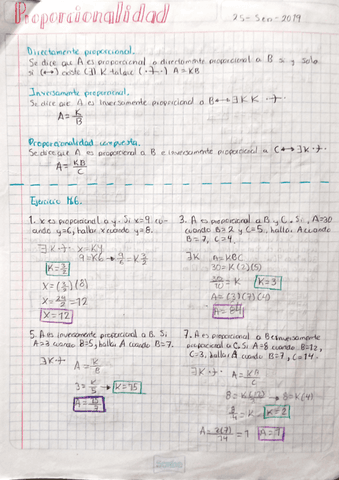 Proporcionalidad
25-Sep-2019
Directamente proporcional.
Se dice que A es proporcional o directamente proporcional a B si y solo
si (↔) existe (∃) K tal que (·7·) A=KB
Inversamente proporcional.
Se dice que A es inversamente proporcional a B ↔ ∃ K K ·7·
A=K/B
Proporcionalidad compuesta.
Se dice que A es proporcional a B e inversamente proporcional a C ↔ ∃ K ·7·
A=KB/C
Ejercicio 116.
1. x es proporcional a y. Si x=9 cu-
ando y=6, hallar x cuando y=8.
∃K 7· x=Ky
9=K6 → 9/6=K 3/2
K=3/2
x=(3/2)(8)
x=24/2=12
X=12
3. A es proporcional a B y C. Si, A=30
cuando B=2 y C=5, hallar A cuando
B=7, C=4.
∃K A=KBC
30=K(2)(5)
30/10=K K=3
A=(3)(7)(4)
A=84
5. A es inversamente proporcional a B. Si
A=3 cuando B=5, hallar A cuando B=7.
∃K 7· A=K/B
3=K/5 → K=15
A=15/7
7. A es proporcional a B e inversamente
proporcional a C. Si A=8 cuando B=12,
C=3, hallar A cuando B=7, C=14.
∃K 7· A=KB/C
8=K(4)
8/4=K K=2
A=2(7)/14=1 A=1